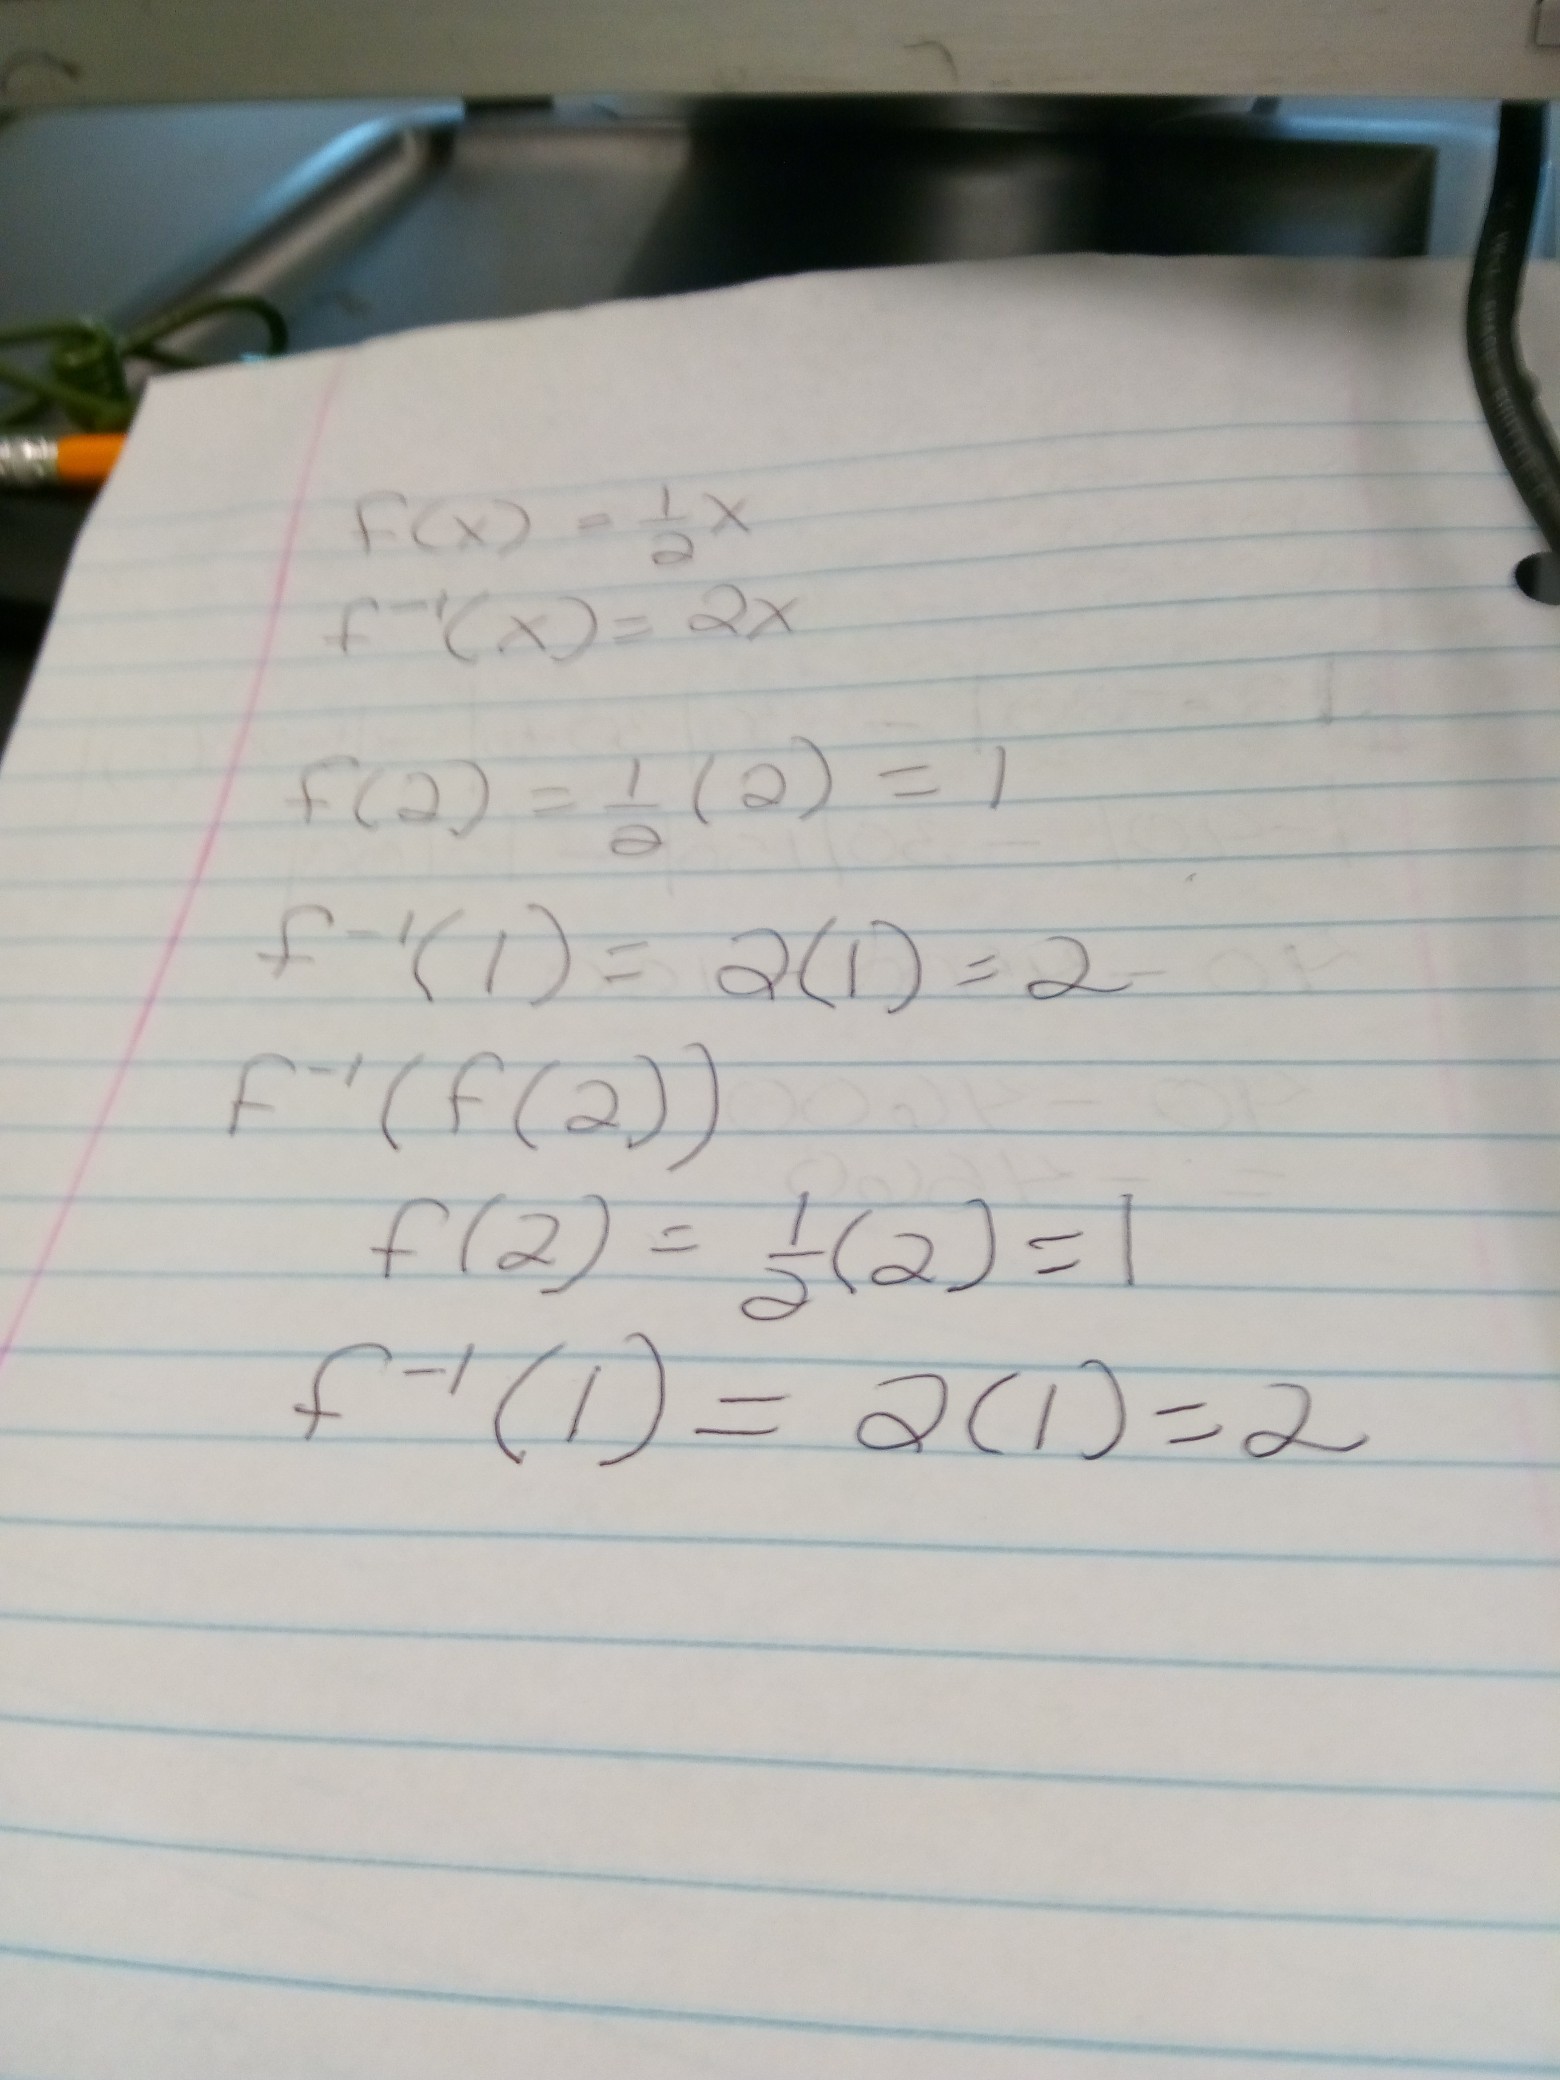 f(x) = 1/2 x
f⁻¹(x) = 2x
f(2) = 1/2 (2) = 1
f⁻¹(1) = 2(1) = 2
f⁻¹(f(2))
f(2) = 1/2 (2) = 1
f⁻¹(1) = 2(1) = 2